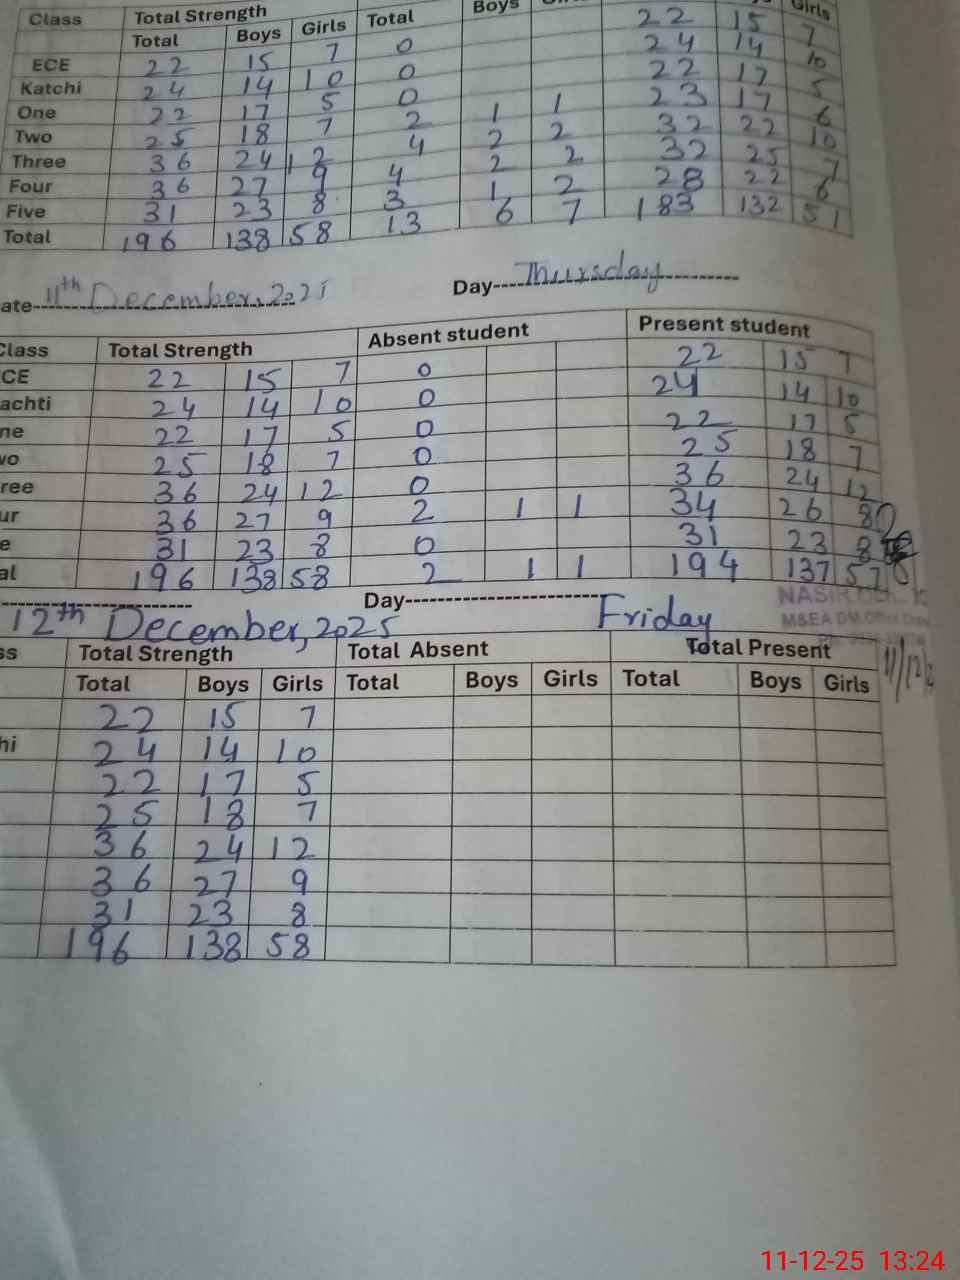 Class Total Strength Boys Girls
Total Boys Girls Total
ECE 22 15 7 0 22 15 7
Katchi 24 14 10 0 24 14 10
One 22 17 5 0 22 17 5
Two 25 18 7 2 1 1 23 17 6
Three 36 24 12 4 2 2 32 22 10
Four 36 27 9 4 2 2 32 25 7
Five 31 23 8 3 1 2 28 22 6
Total 196 138 58 13 6 7 183 132 51
ate 11th December, 2025 Day Thursday
Class Total Strength Absent student Present student
CE 22 15 7 0 22 15 7
achti 24 14 10 0 24 14 10
ne 22 17 5 0 22 17 5
wo 25 18 7 0 25 18 7
ree 36 24 12 0 36 24 12
ur 36 27 9 2 1 1 34 26 8
e 31 23 8 0 31 23 8
al 196 138 58 2 1 1 194 137 57
12th December, 2025 Day Friday
NASIR
M&EA DM Office
ss Total Strength Total Absent Total Present
Total Boys Girls Total Boys Girls Total Boys Girls
22 15 7
hi 24 14 10
22 17 5
25 18 7
36 24 12
36 27 9
31 23 8
196 138 58
11-12-25 13:24